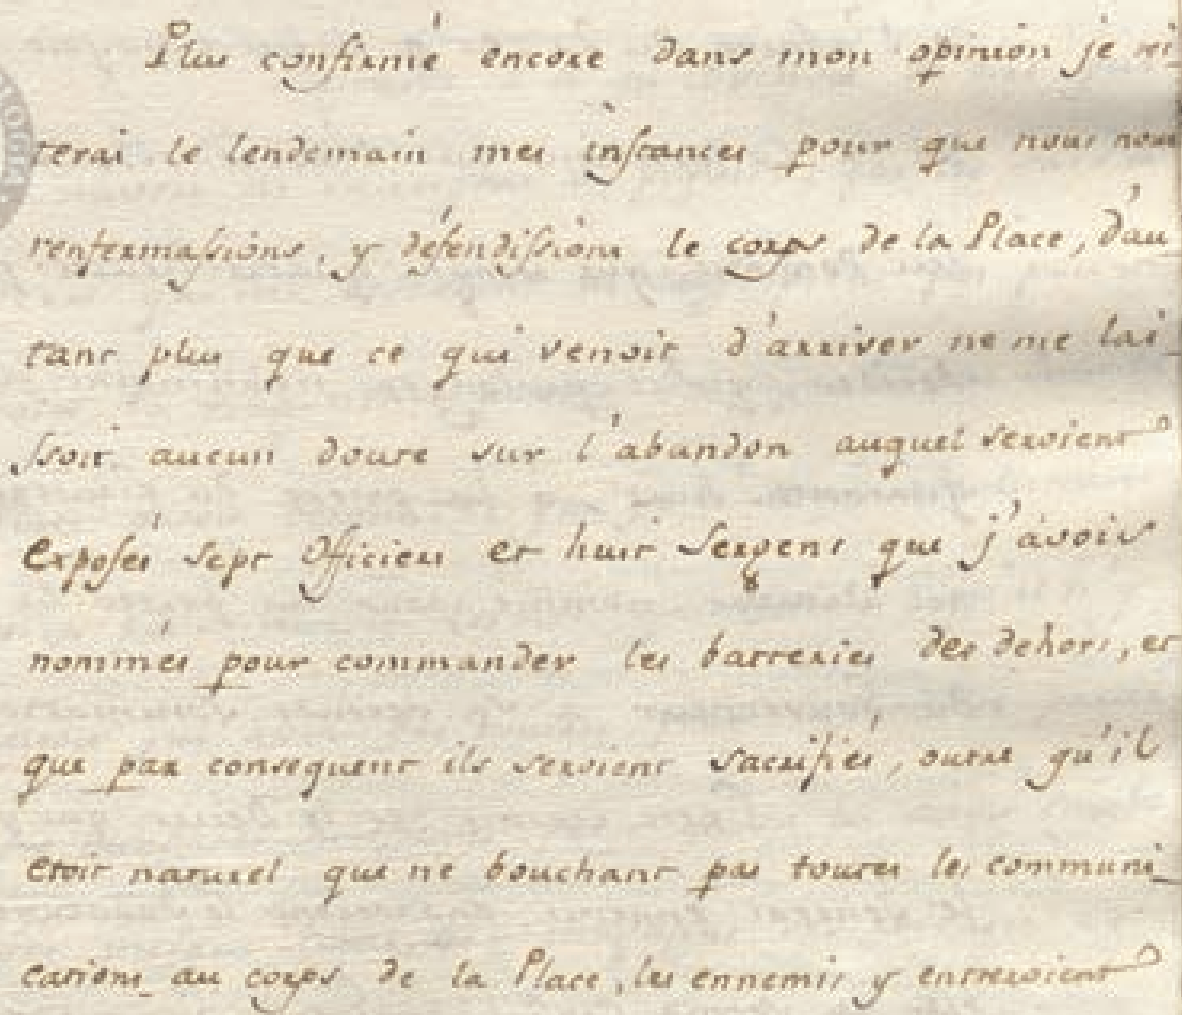 Plus confirmé encore dans mon opinion je réi_
terai le lendemain mes instances pour que nous nous
renfermassions, y défendissions le corps de la Place, d'au_
tant plus que ce qui venoit d'arriver ne me lai_
ssoit aucun doute sur l'abandon auquel seroient
exposés sept Officiers et huit Sergens que j'avois
nommés pour commander les batteries des dehors, et
que par consequent ils seroient sacrifiés, outre qu'il
etoit naturel que ne bouchant pas toutes les communi_
cations au corps de la Place, les ennemis y entreroient